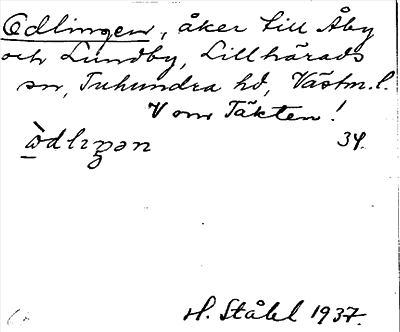 Odlingen, åker till Åby
och Lundby, Lillhärads
sn, Tuhundra hd, Västm. l.
V om Täkten!
òdlıŋən 34.
H. Ståhl 1937.